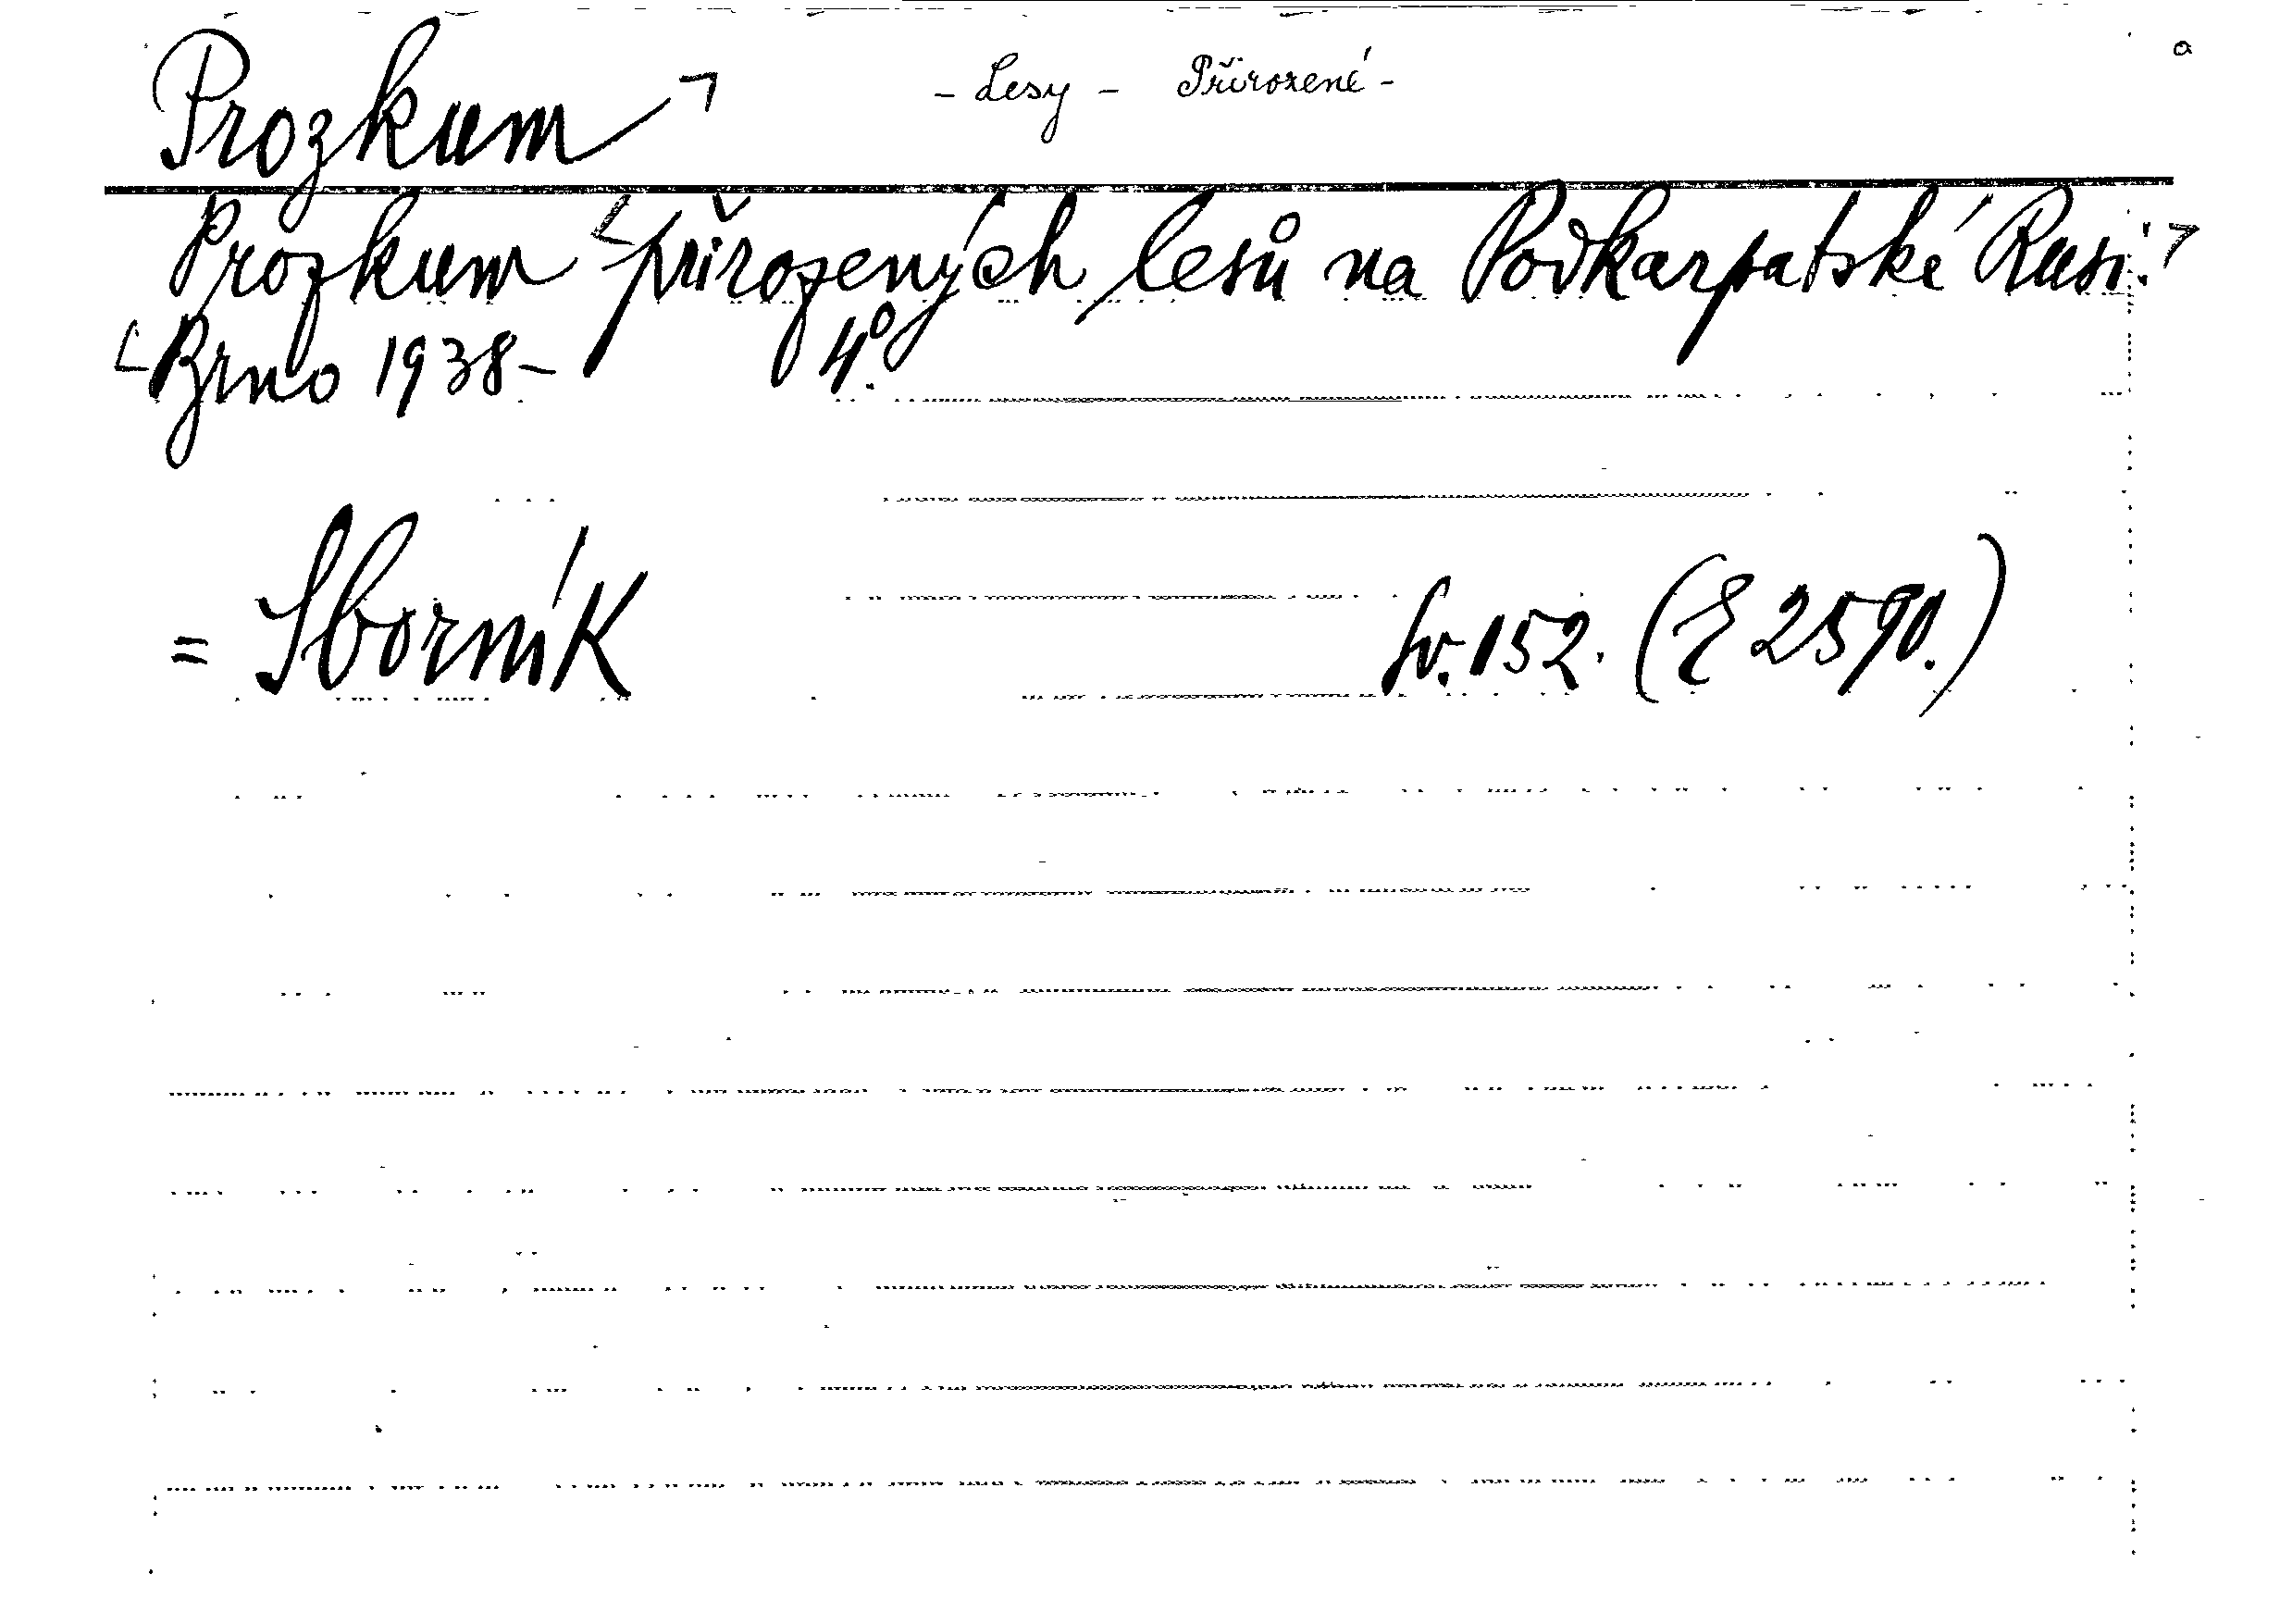 Prozkum ¬ - Lesy - Přirozené - a
Prozkum přirozených lesů na Podkarpatské Rusi.
Brno 1938- 4°.
= Sborník sv. 152. (E 2590.)